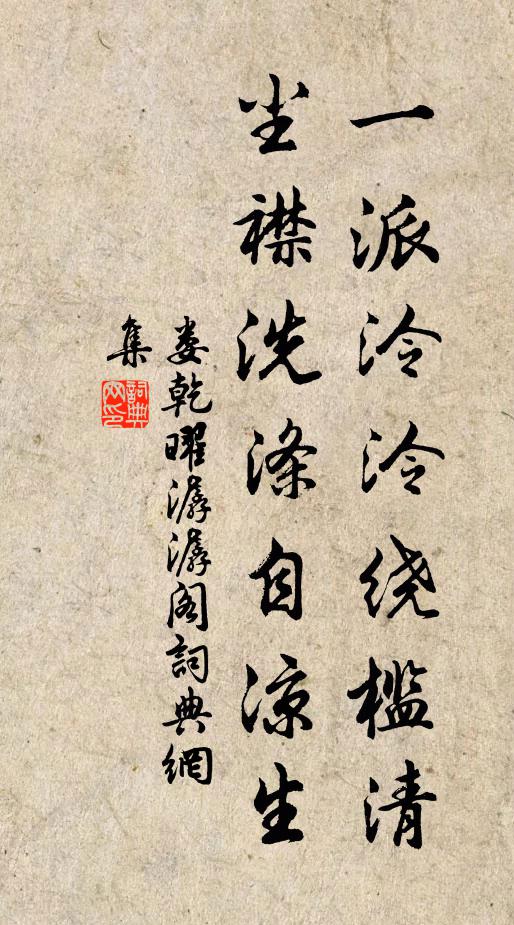 一派泠泠绕槛清
尘襟洗涤自凉生
娄乾曜潺潺阁詞典網
集
詞典
网印